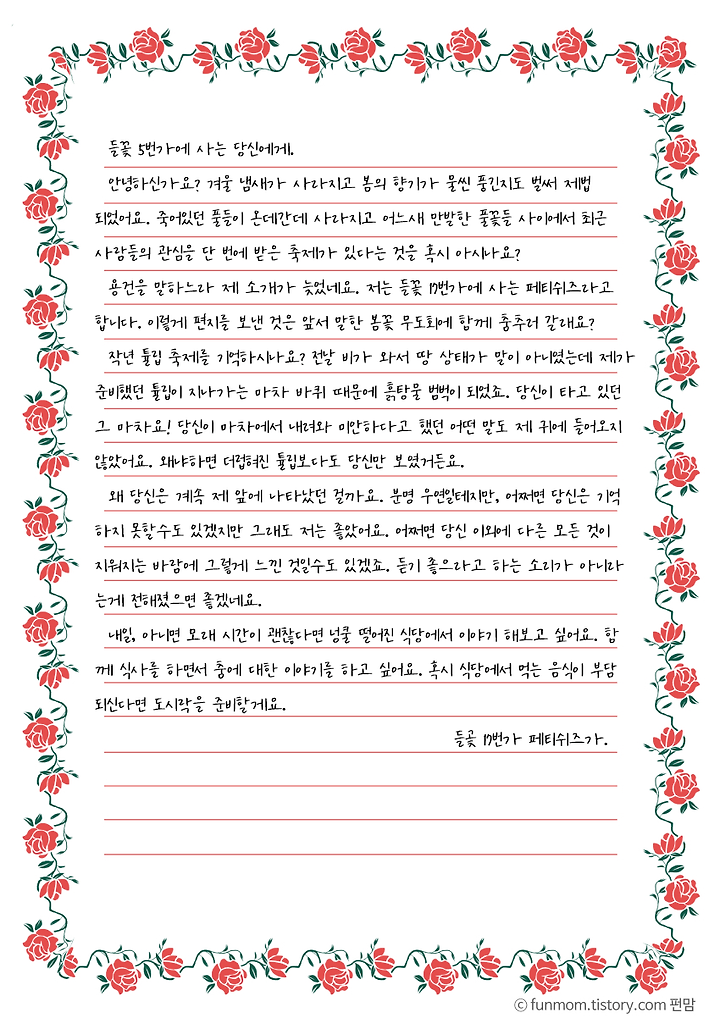 들꽃 5번가에 사는 당신에게.
안녕하신가요? 겨울 냄새가 사라지고 봄의 향기가 물씬 풍긴지도 벌써 제법
되었어요. 죽어있던 풀들이 온데간데 사라지고 어느새 만발한 풀꽃들 사이에서 최근
사람들의 관심을 단 번에 받은 축제가 있다는 것을 혹시 아시나요?
용건을 말하느라 제 소개가 늦었네요. 저는 들꽃 17번가에 사는 페티쉬즈라고
합니다. 이렇게 편지를 보낸 것은 앞서 말한 봄꽃 무도회에 함께 춤추러 갈래요?
작년 튤립 축제를 기억하시나요? 전날 비가 와서 땅 상태가 말이 아니였는데 제가
준비했던 튤립이 지나가는 마차 바퀴 때문에 흙탕물 범벅이 되었죠. 당신이 타고 있던
그 마차요! 당신이 마차에서 내려와 미안하다고 했던 어떤 말도 제 귀에 들어오지
않았어요. 왜냐하면 더럽혀진 튤립보다도 당신만 보였거든요.
왜 당신은 계속 제 앞에 나타났던 걸까요. 분명 우연일테지만, 어쩌면 당신은 기억
하지 못할수도 있겠지만 그래도 저는 좋았어요. 어쩌면 당신 이외에 다른 모든 것이
지워지는 바람에 그렇게 느낀 것일수도 있겠죠. 듣기 좋으라고 하는 소리가 아니라
는게 전해졌으면 좋겠네요.
내일, 아니면 모래 시간이 괜찮다면 넝쿨 떨어진 식당에서 이야기 해보고 싶어요. 함
께 식사를 하면서 춤에 대한 이야기를 하고 싶어요. 혹시 식당에서 먹는 음식이 부담
되신다면 도시락을 준비할게요.
들곷 17번가 페티쉬즈가.
ⓒ funmom.tistory.com 펀맘